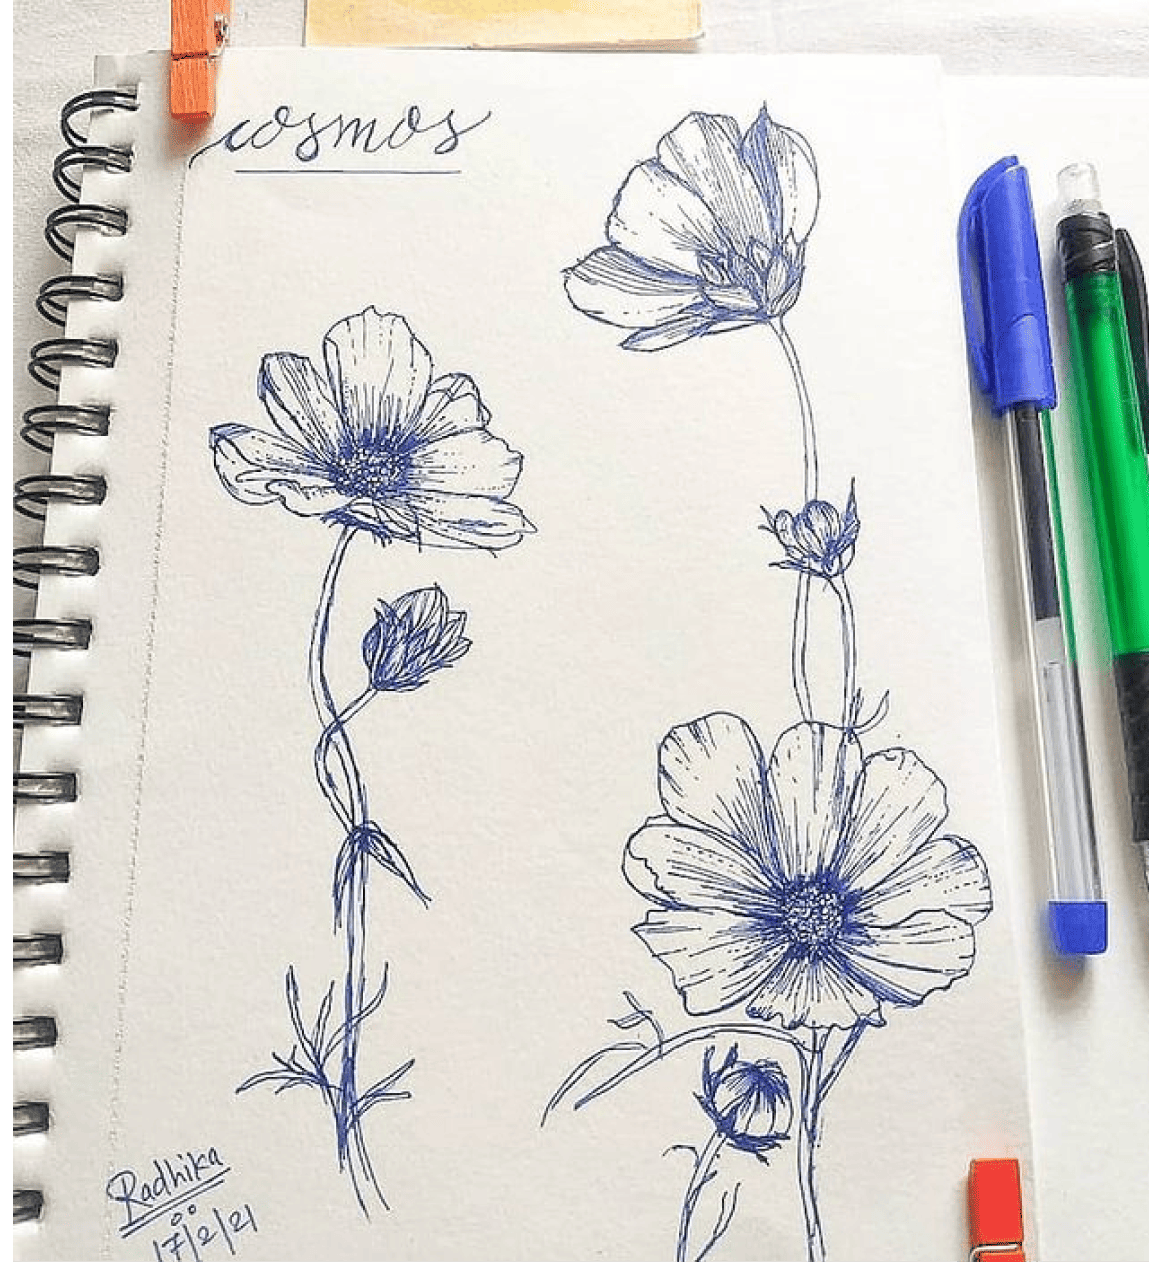 cosmos
Radhika
17/2/21